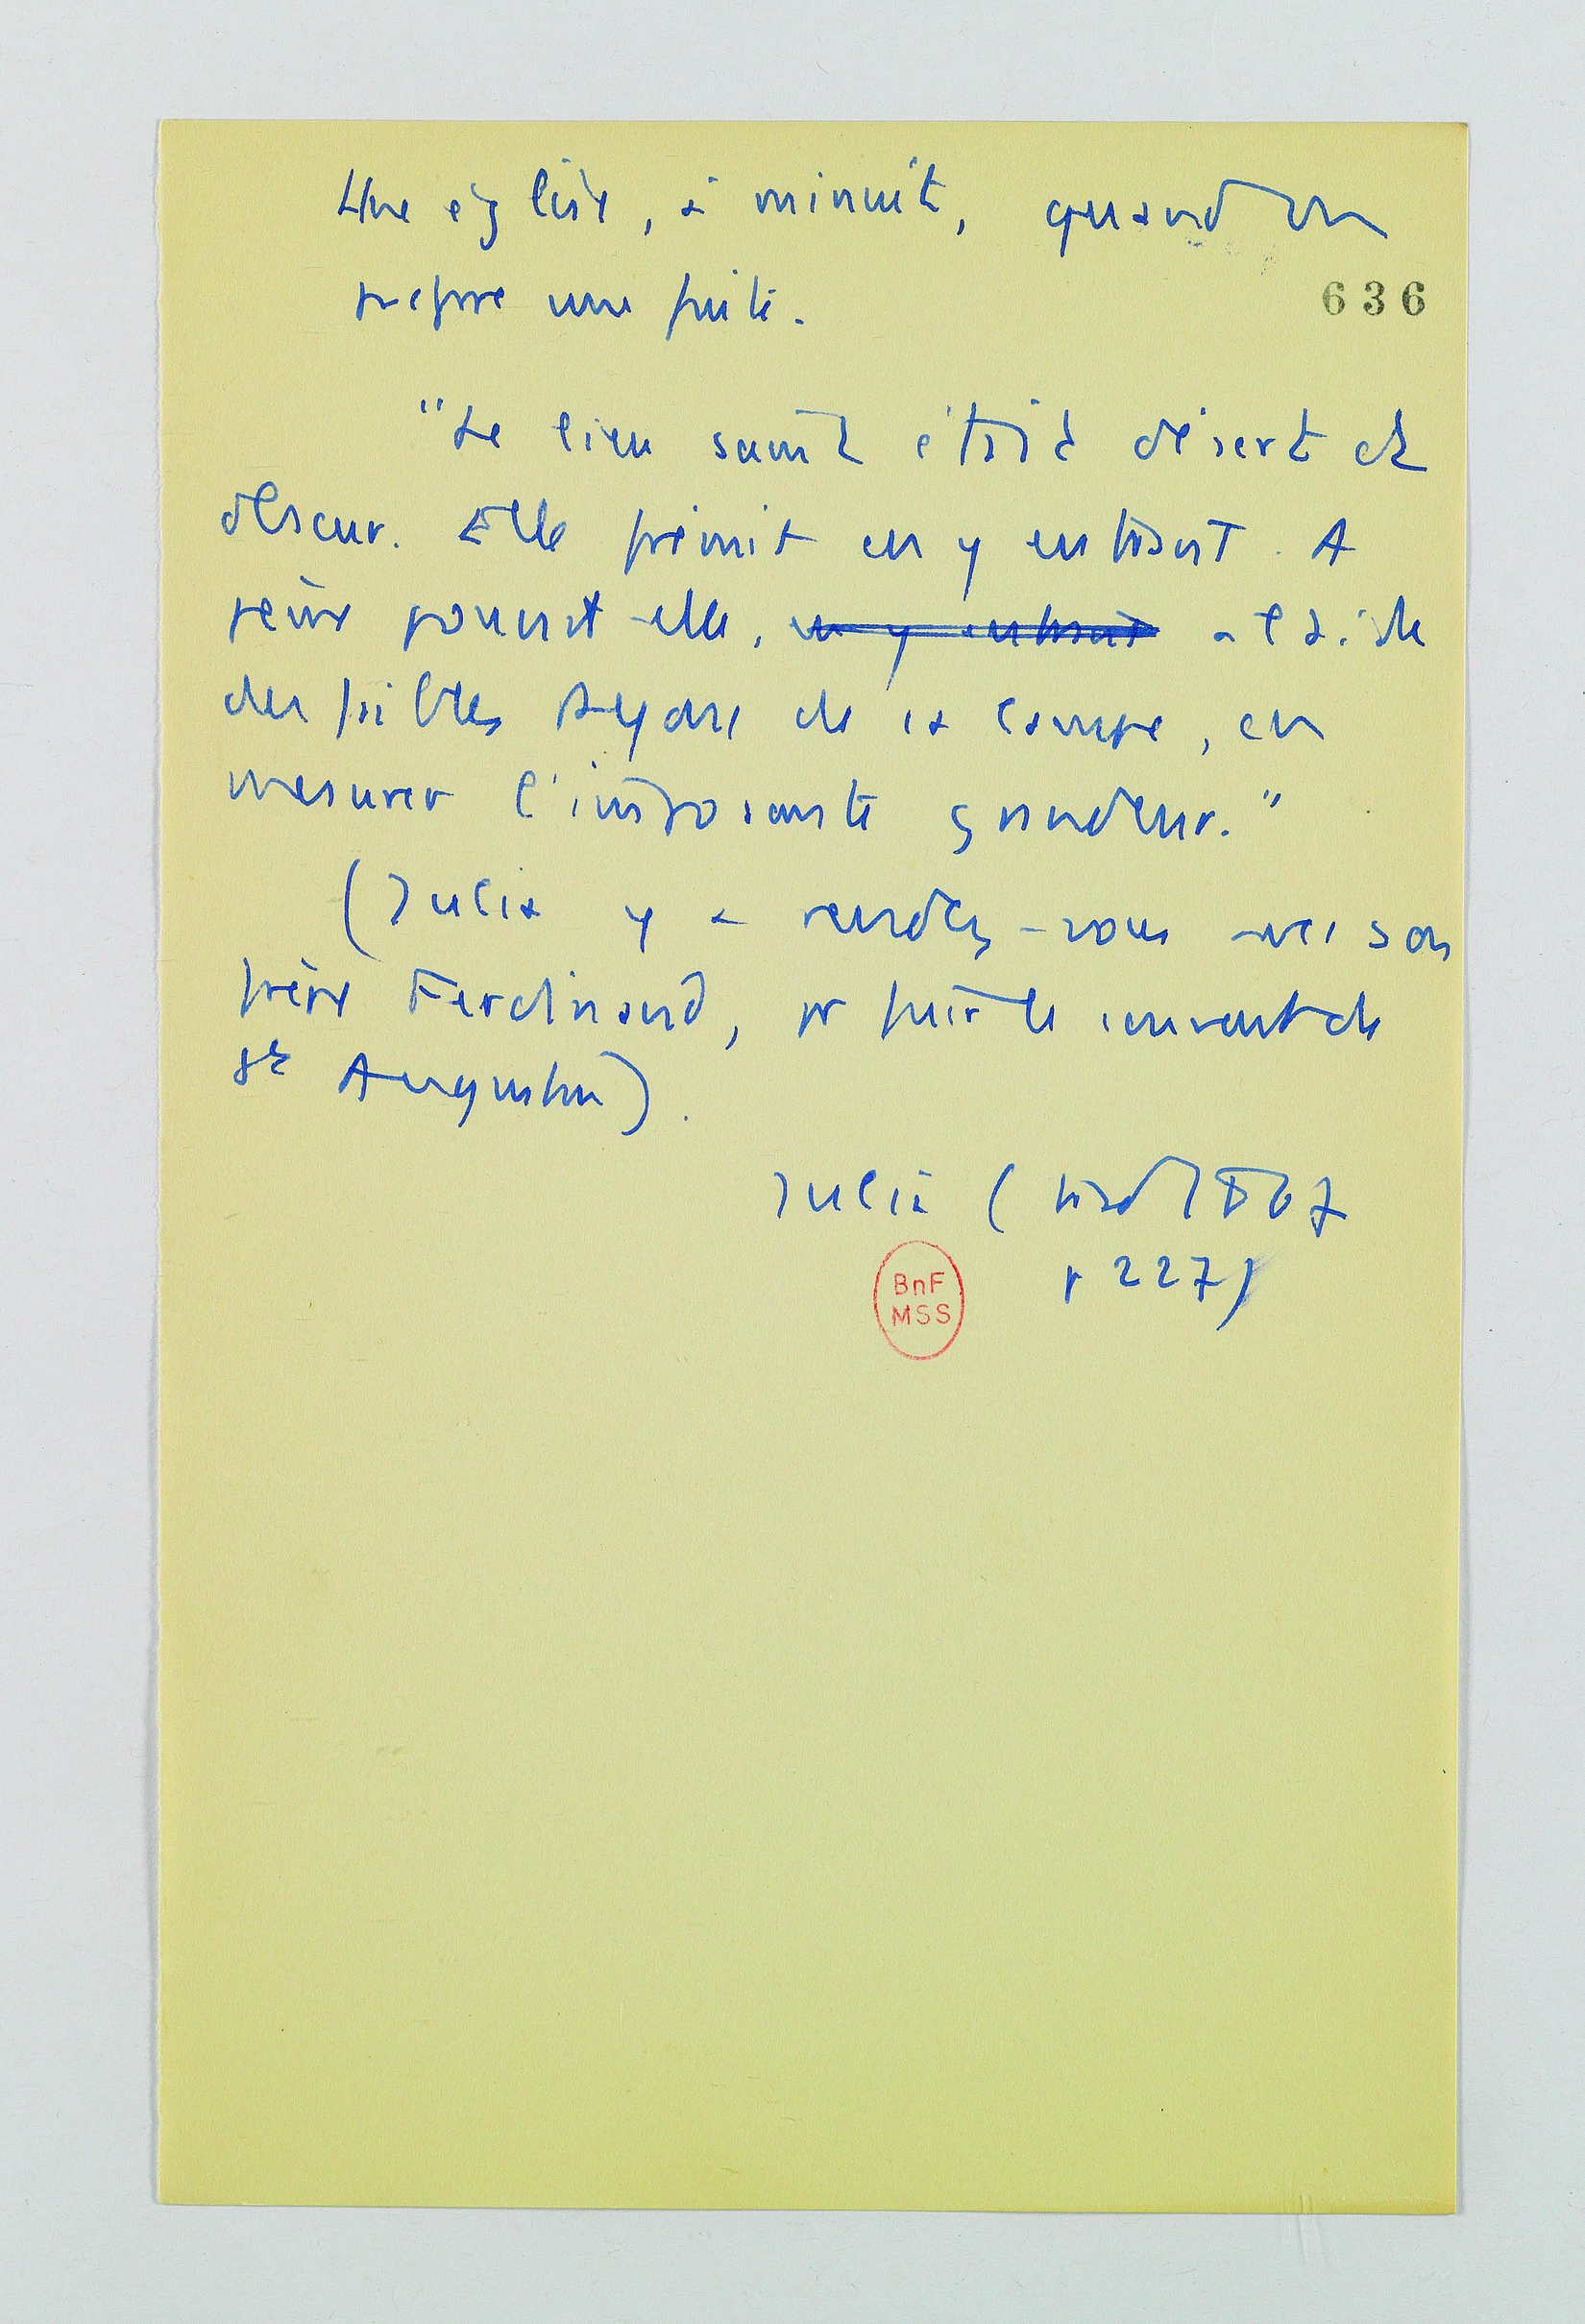 Une église, à minuit, quand on
prépare une fuite.
636
"Le lieu saint était désert et
obscur. Elle frémit en y entrant. A
peine pouvait-elle, en y entrant à l'aide
des faibles rayons de la lampe, en
mesurer l'imposante grandeur."
(Julia y a rendez-vous avec son
frère Ferdinand, pr fuir le couvent de
St Augustin).
Julia (trad 1867
p 227)
BnF
MSS